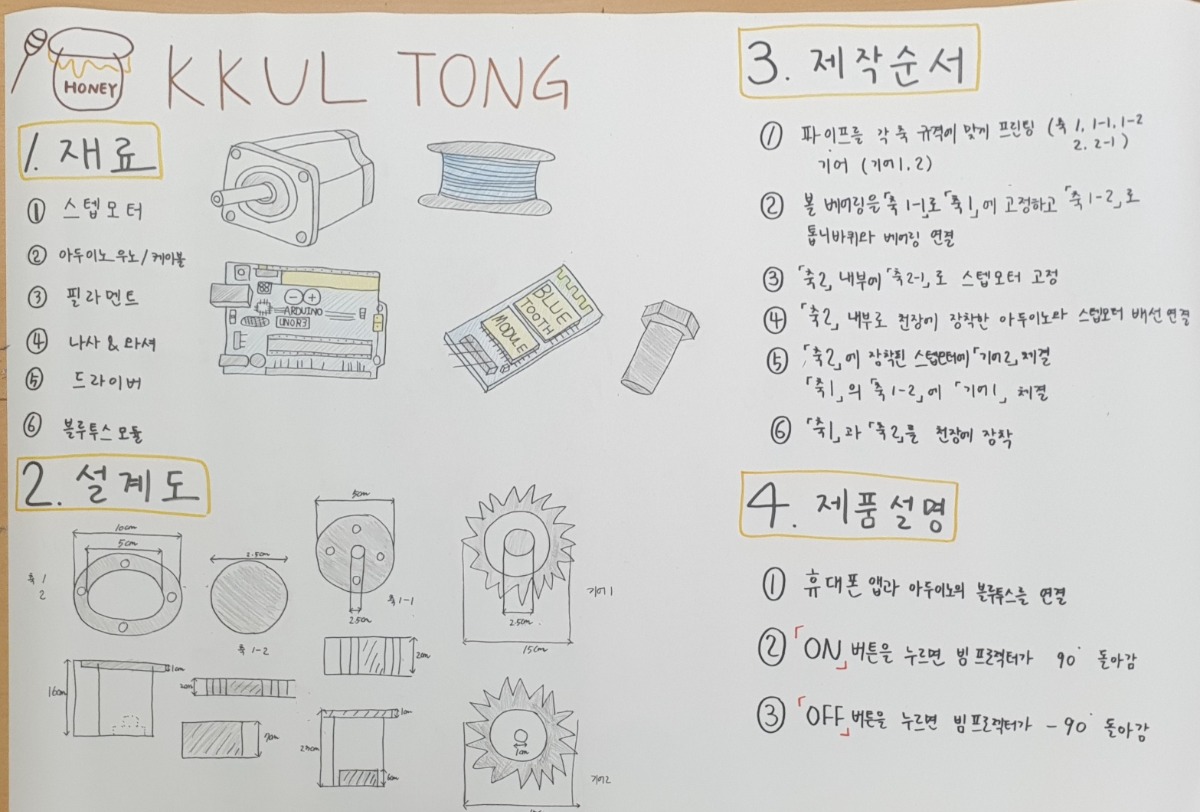 HONEY
KKUL TONG
1. 재료
① 스텝모터
② 아두이노 우노/케이블
③ 필라멘트
④ 나사 & 와셔
⑤ 드라이버
⑥ 블루투스 모듈
ARDUINO
UNOR3
BLUE
TOOTH
MODULE
2. 설계도
10cm
5cm
축 1
2
3.5cm
축 1-2
5cm
축 1-1
2.5cm
기어 1
2.5cm
15cm
16cm
1cm
2cm
2cm
7cm
1cm
6cm
1cm
기어2
3. 제작순서
① 파이프를 각 축 규격에 맞게 프린팅 (축 1, 1-1, 1-2
2, 2-1)
기어 (기어1, 2)
② 볼 베어링을 「축 1-1」로 「축1」에 고정하고 「축 1-2」로
톱니바퀴와 베어링 연결
③ 「축2」 내부에 「축2-1」로 스텝모터 고정
④ 「축2」 내부로 천장에 장착한 아두이노와 스텝모터 배선 연결
⑤ 「축2」에 장착된 스텝모터에 「기어2」 체결
「축1」의 「축1-2」에 「기어1」 체결
⑥ 「축1」과 「축2」를 천장에 장착
4. 제품설명
① 휴대폰 앱과 아두이노의 블루투스를 연결
② 「ON」 버튼을 누르면 빔프로젝터가 90° 돌아감
③ 「OFF」 버튼을 누르면 빔프로젝터가 -90° 돌아감